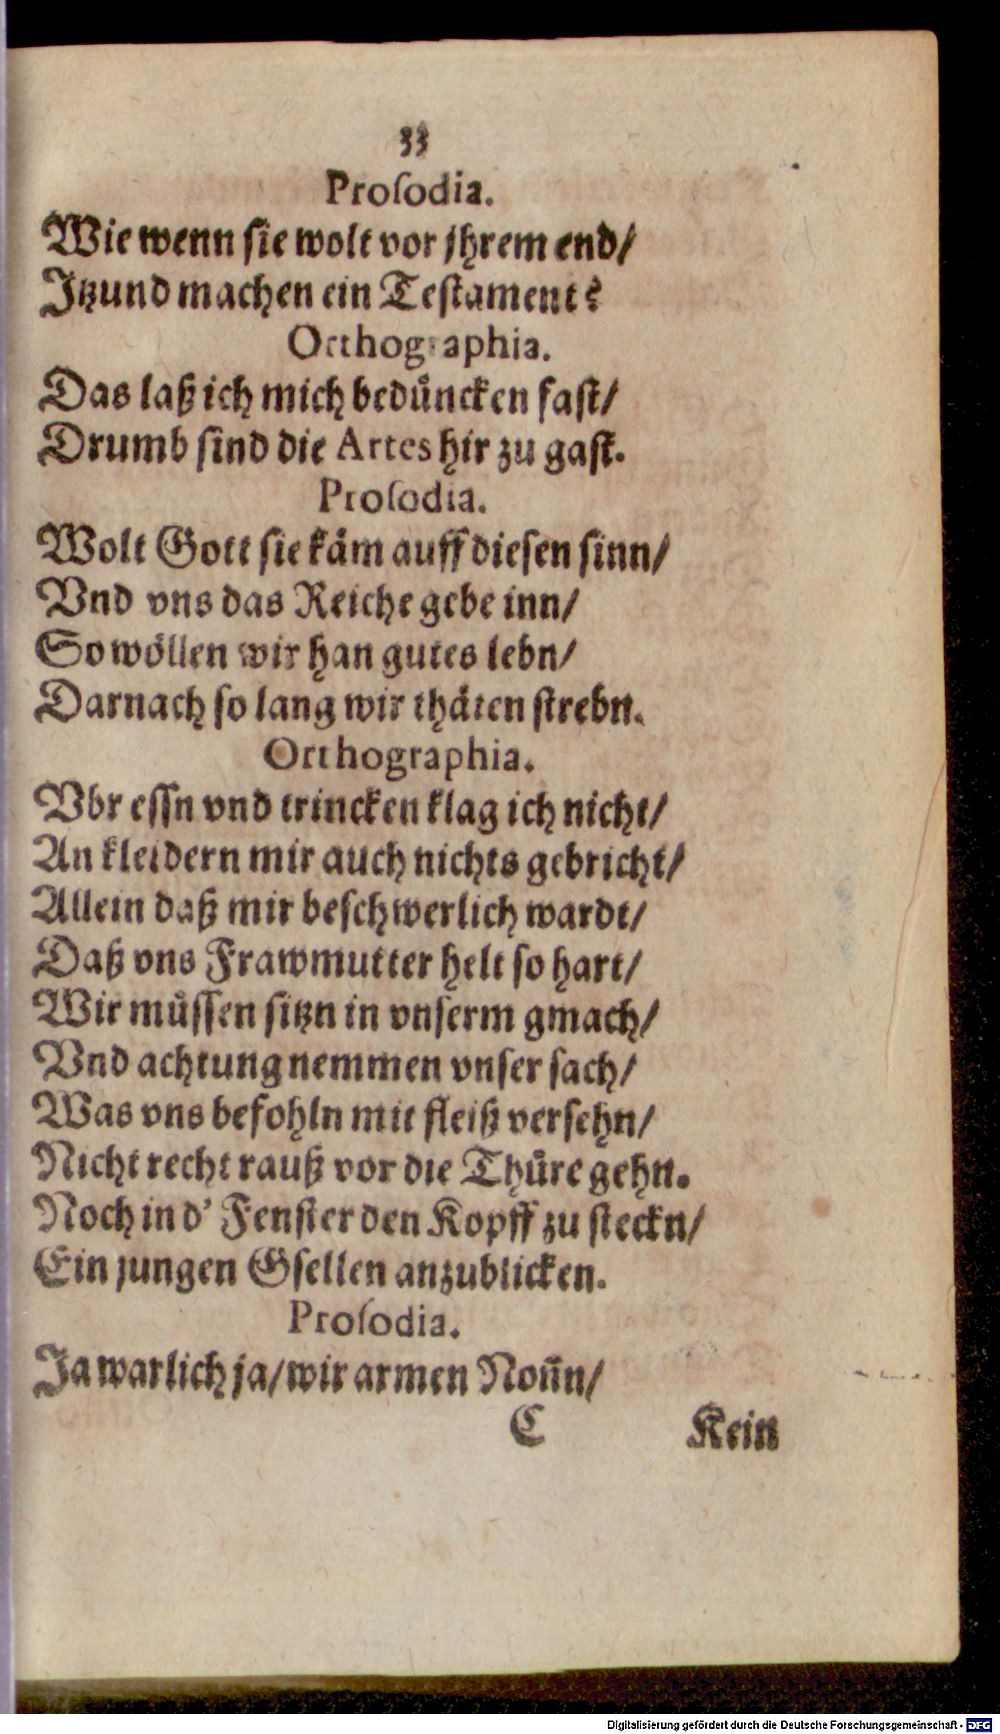 33
Proſodia.
Wie wenn ſie wolt vor jhrem end/
Jtzund machen ein Teſtament?
Orthographia.
Das laß ich mich beduͤncken faſt/
Drumb ſind die Artes hir zu gaſt.
Proſodia.
Wolt Gott ſie kaͤm auff dieſen ſinn/
Vnd vns das Reiche gebe inn/
So woͤllen wir han gutes lebn/
Darnach ſo lang wir thaͤten ſtrebn.
Orthographia.
Vbr eſſn vnd trincken klag ich nicht/
An kleidern mir auch nichts gebricht/
Allein daß mir beſchwerlich wardt/
Daß vns Frawmutter helt ſo hart/
Wir muͤſſen ſitzn in vnſerm gmach/
Vnd achtung nemmen vnſer ſach/
Was vns befohln mit fleiß verſehn/
Nicht recht rauß vor die Thuͤre gehn.
Noch in d' Fenſter den Kopff zu ſteckn/
Ein jungen Gſellen anzublicken.
Proſodia.
Ja warlich ja/ wir armen Noñn/
C Kein
Digitalisierung gefördert durch die Deutsche Forschungsgemeinschaft - DFG